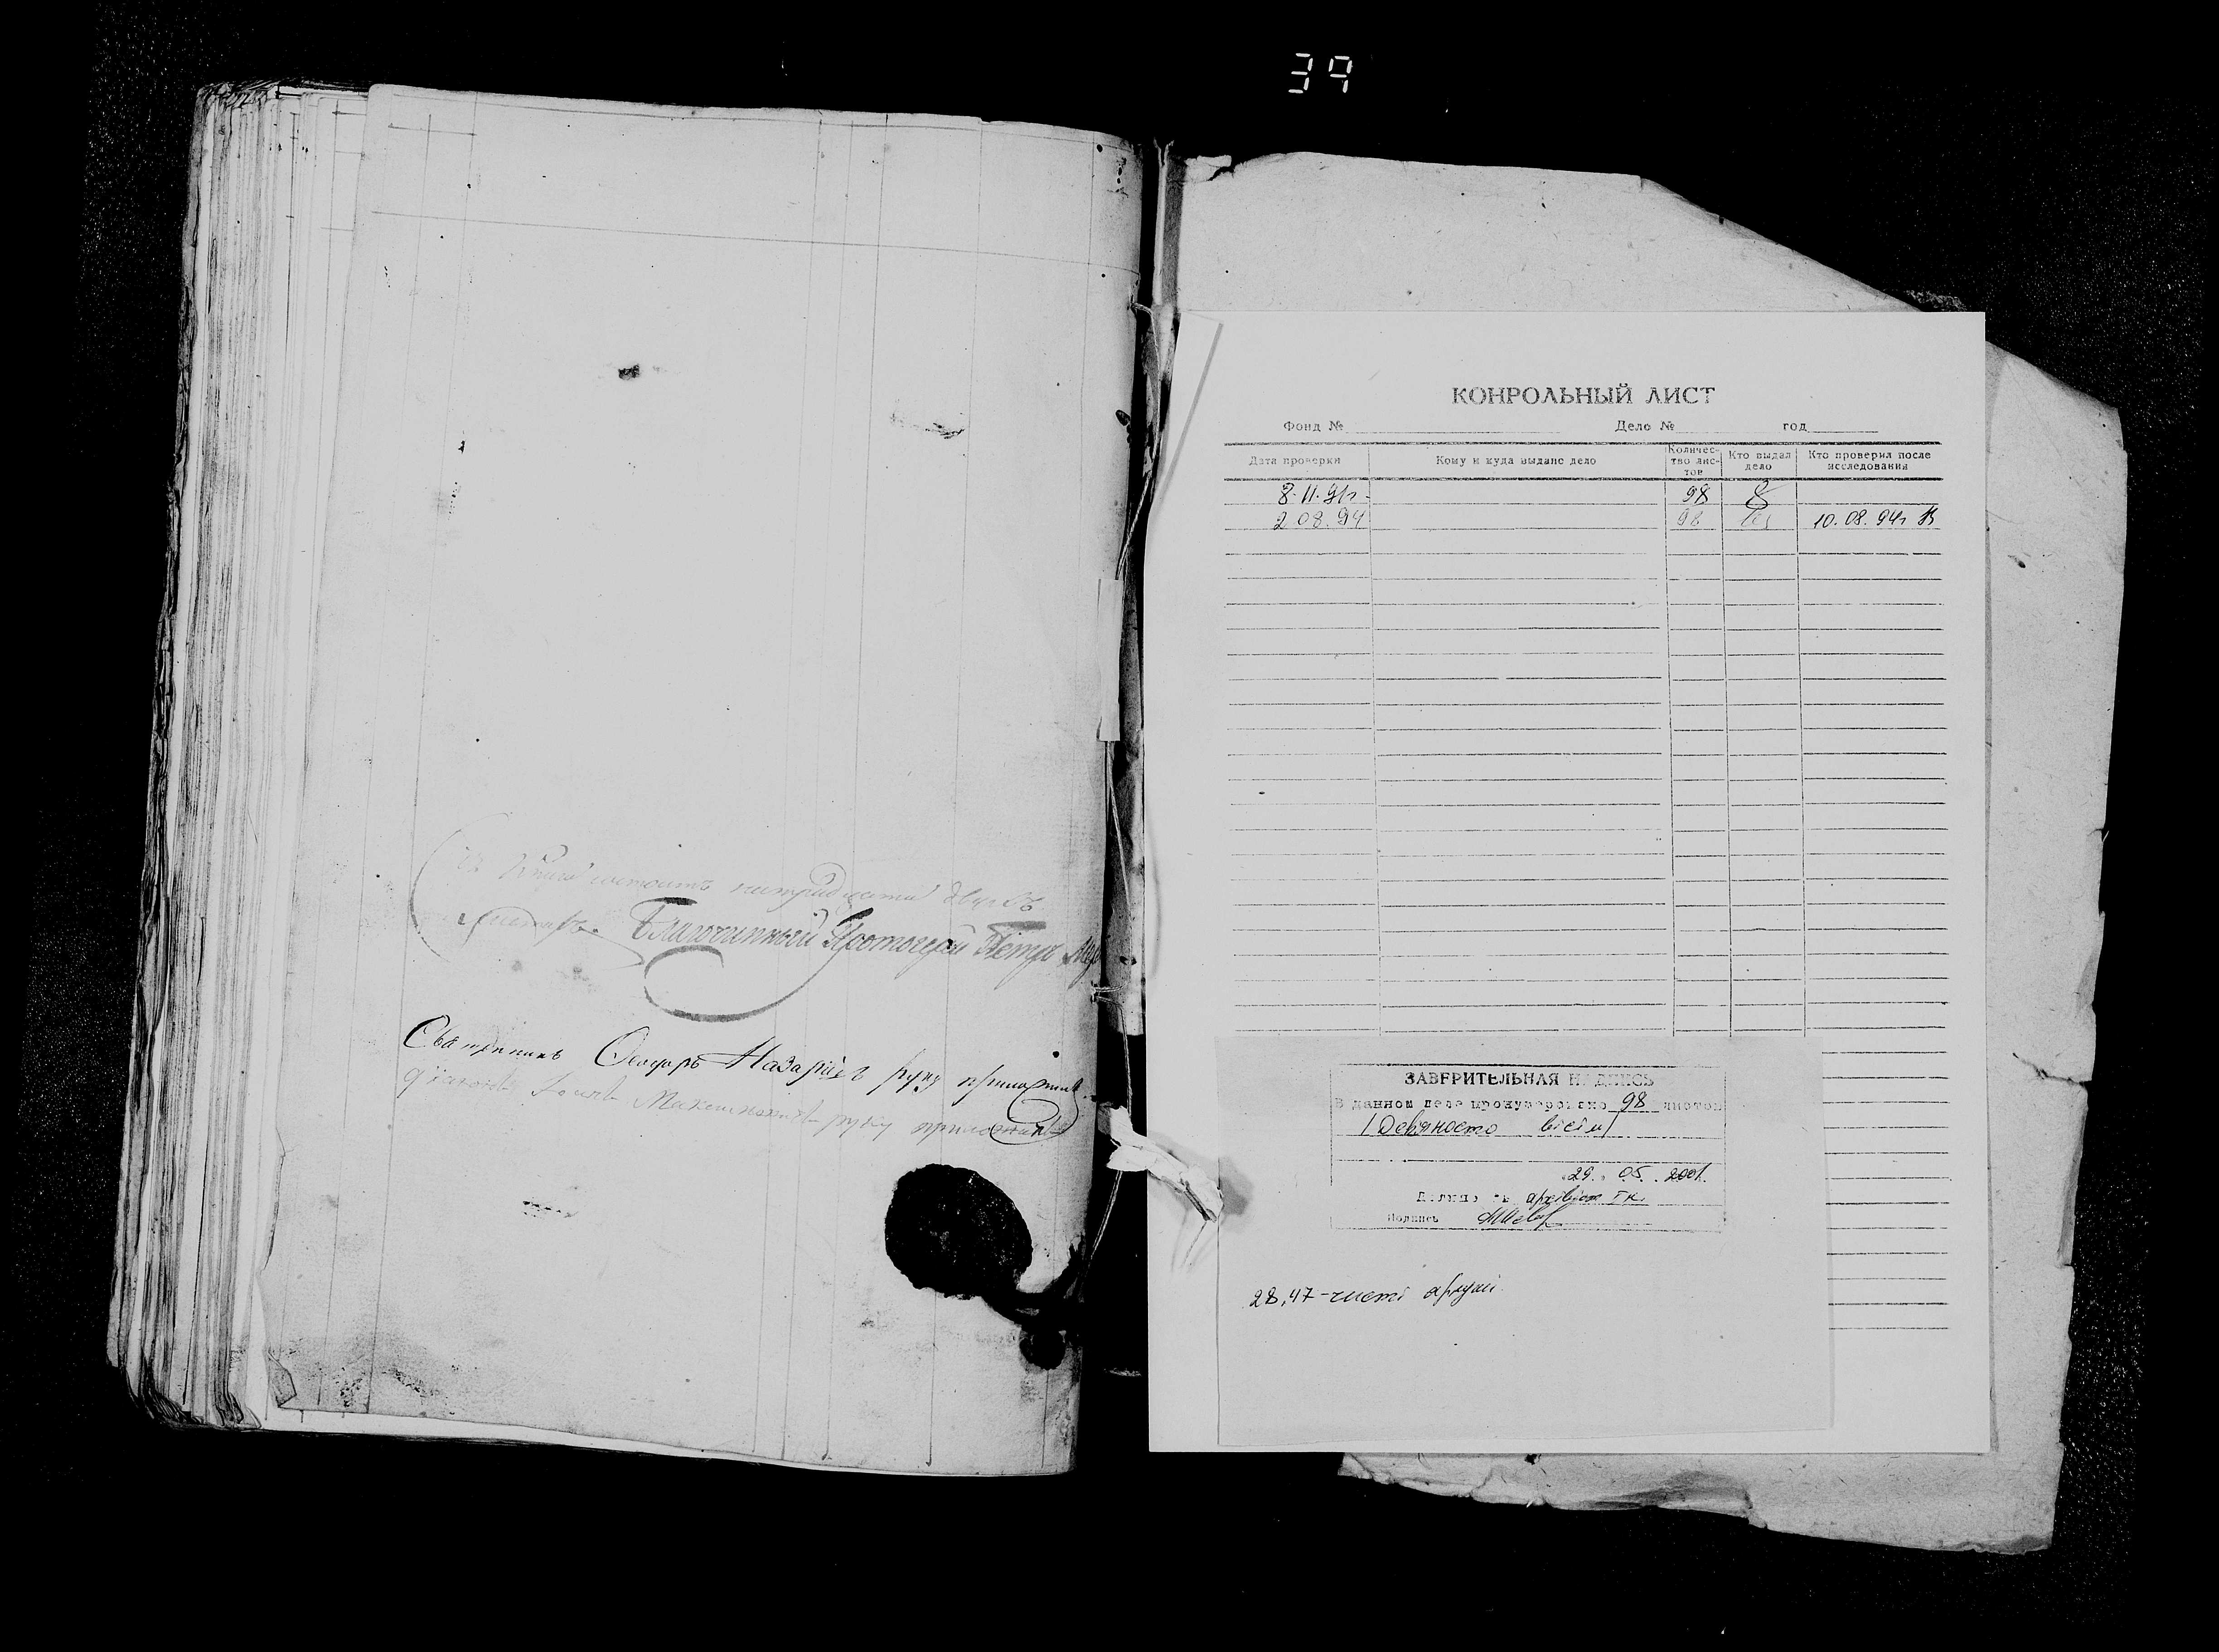 39
Книга состоитъ
листахъ. Благочинный Протоіерей Петръ
Священникъ Ѳеодоръ Назаріевъ руку приложилъ
діаконъ руку приложилъ
КОНРОЛЬНЫЙ ЛИСТ
Фонд № Дело № год
Дата проверки Кому и куда выдано дело Количес-тво лис-тов Кто выдал дело Кто проверил после исследования
8.11.91г. 98
2 08.94 98 10.08.94г
ЗАВЕРИТЕЛЬНАЯ НАДПИСЬ
В данном деле пронумеровано 98 листов
/Девяносто вісім/
29. 05. 2001.
Должность архівіст І к.
Подпись
28,47-чисті аркуші